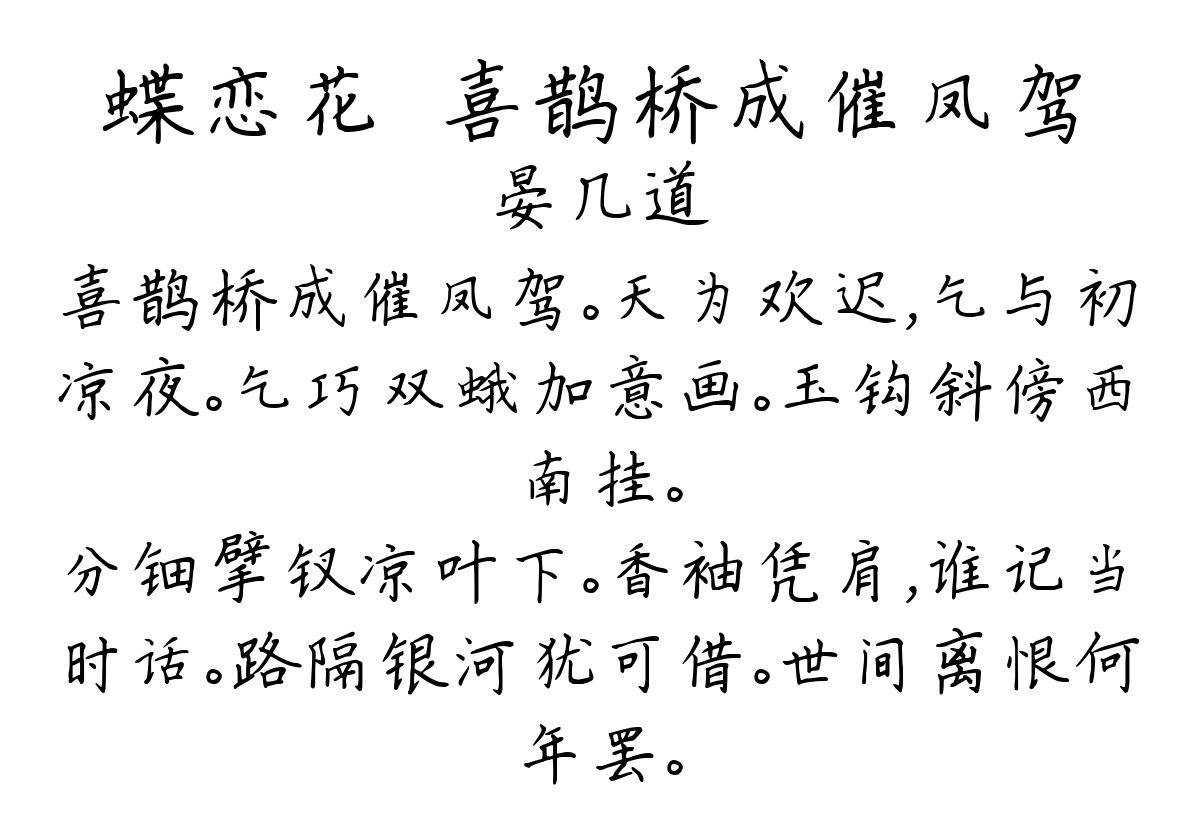 蝶恋花 喜鹊桥成催凤驾
晏几道
喜鹊桥成催凤驾。天为欢迟,乞与初
凉夜。乞巧双蛾加意画。玉钩斜傍西
南挂。
分钿擘钗凉叶下。香袖凭肩,谁记当
时话。路隔银河犹可借。世间离恨何
年罢。